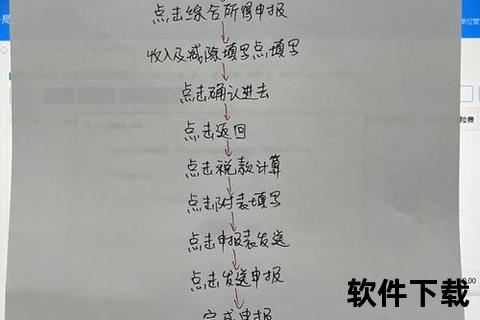 点击综合所得申报
收入及减除填写点填写
点击确认进去
点击返回
点击税款计算
点击附表填写
点击申报表发送
点击发送申报
完成申报
软件下载